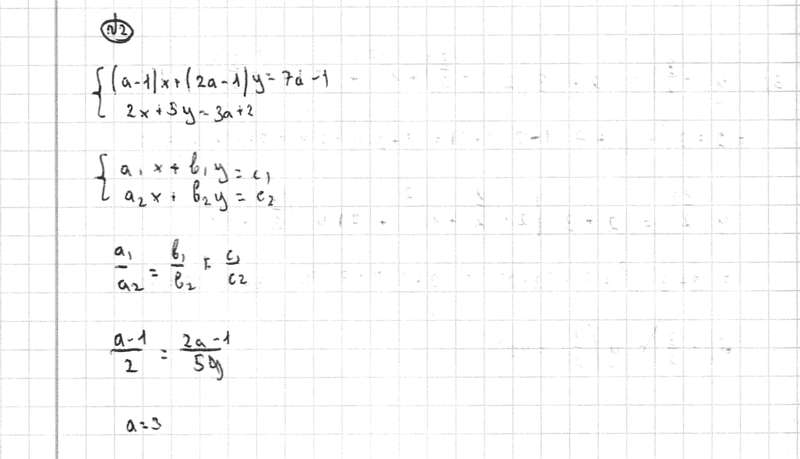 №2
{ (a-1)x+(2a-1)y=7a-1
2x+5y=3a+2
{ a₁x+b₁y=c₁
a₂x+b₂y=c₂
a₁/a₂ = b₁/b₂ = c₁/c₂
(a-1)/2 = (2a-1)/5
a=3